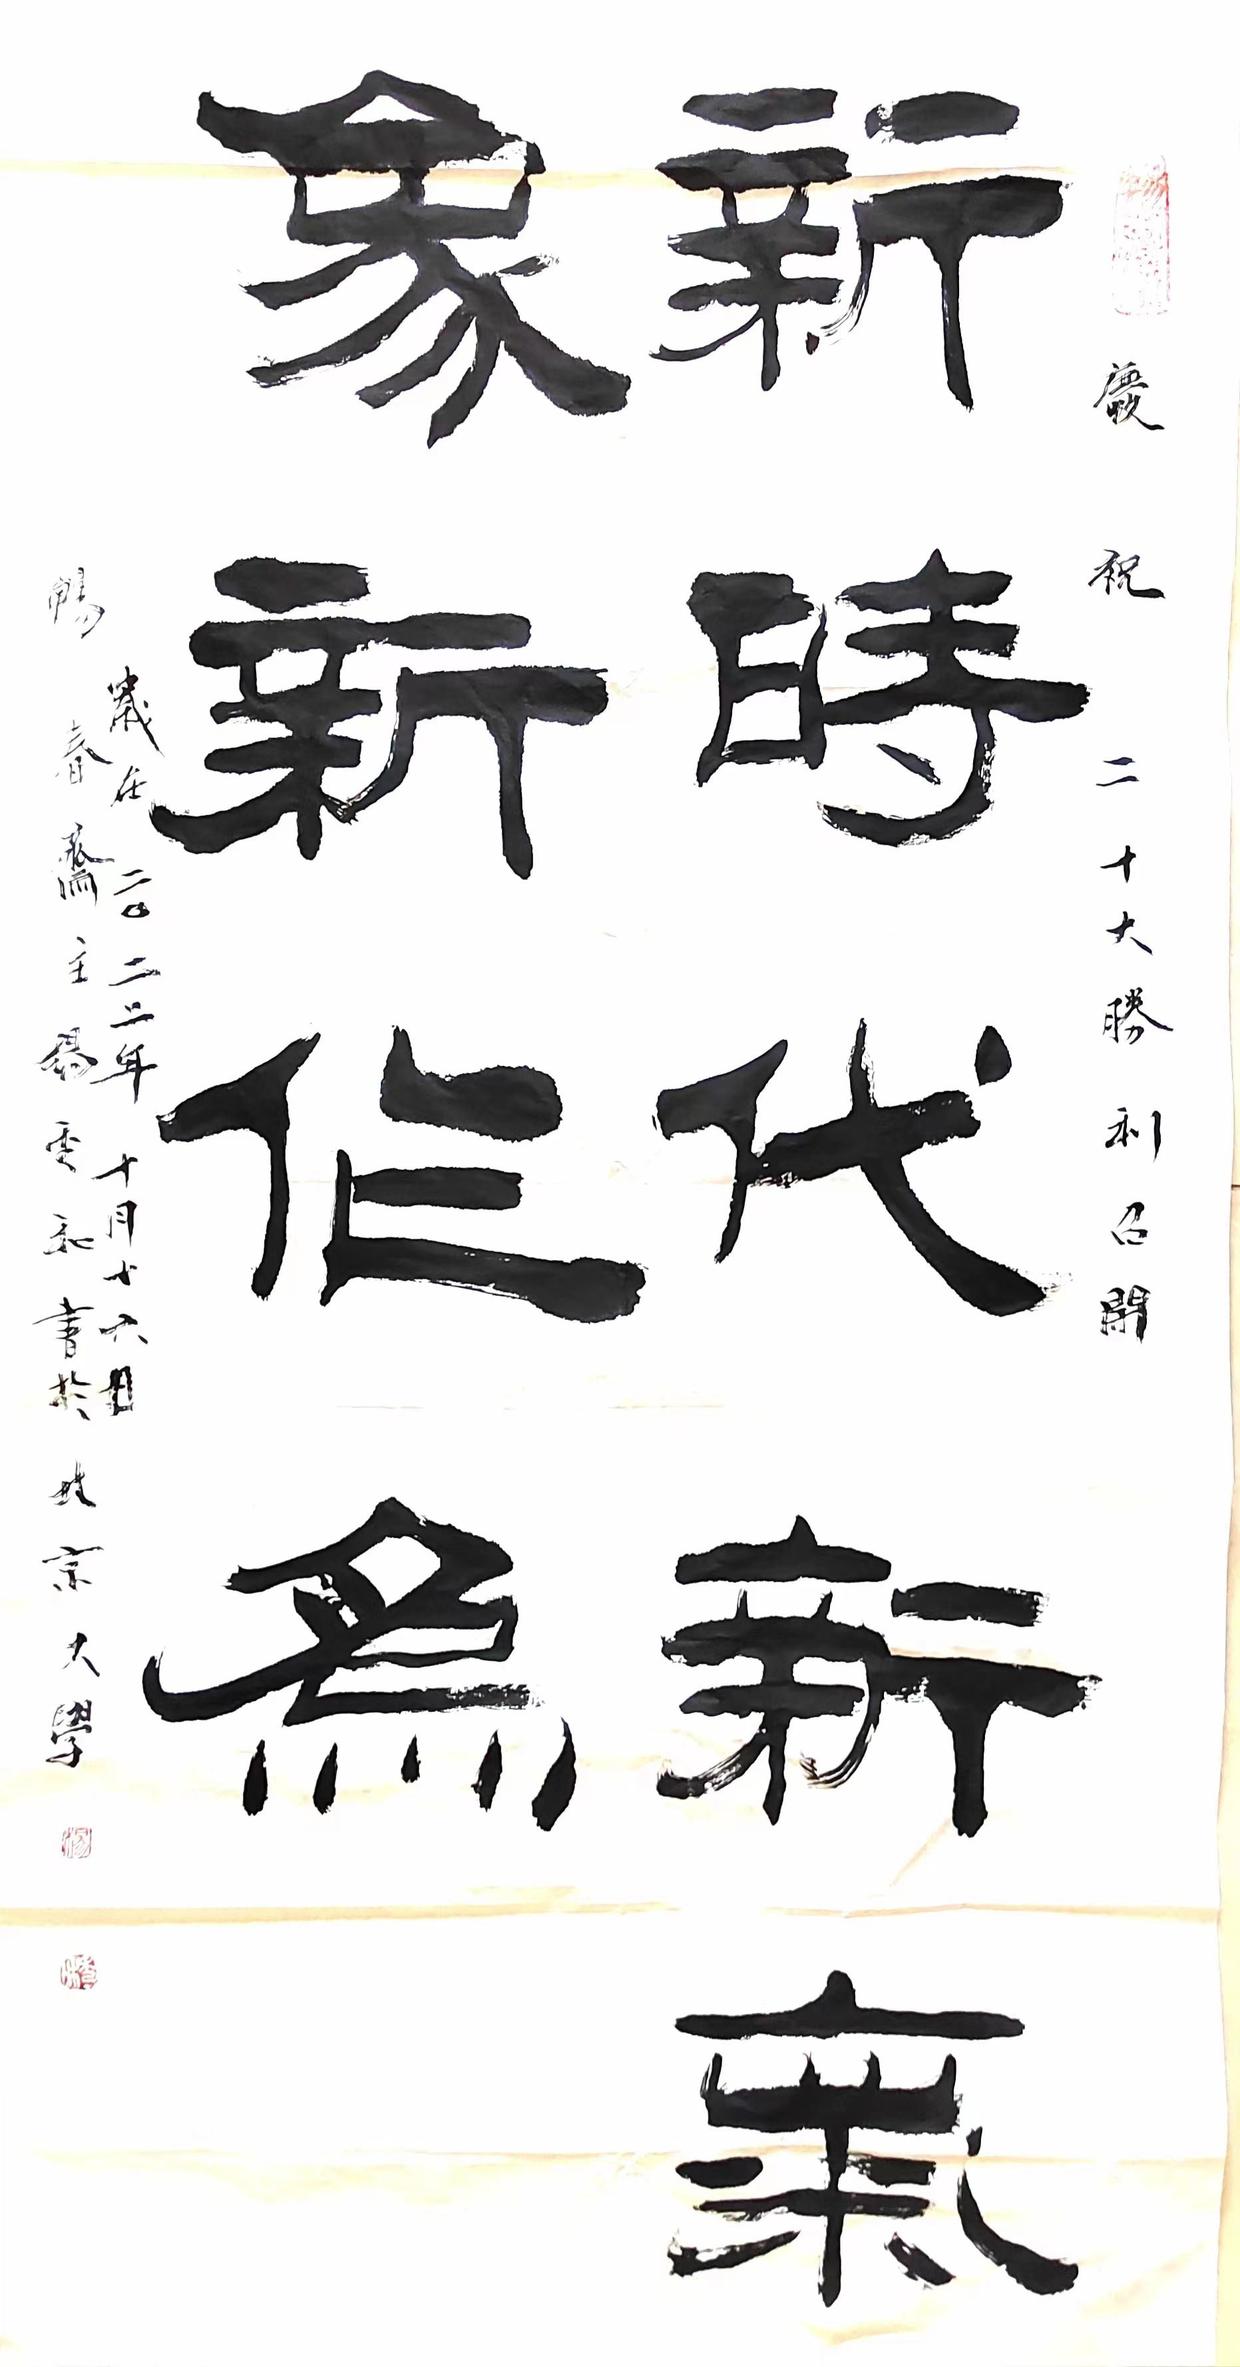 慶祝二十大勝利召開
新時代新氣
象新作為
歲在二〇二二年十月十六日
暢春齋主楊雲書於北京大學